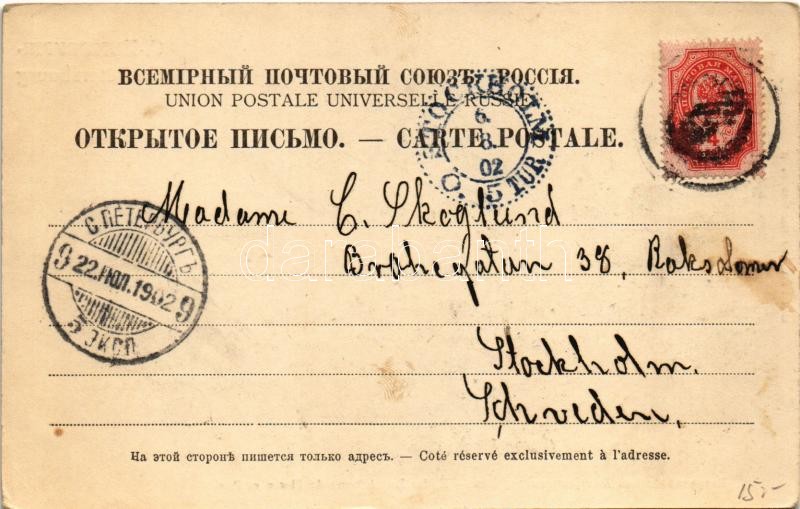 ВСЕМІРНЫЙ ПОЧТОВЫЙ СОЮЗЪ. РОССІЯ.
UNION POSTALE UNIVERSELLE RUSSIE
ОТКРЫТОЕ ПИСЬМО. — CARTE POSTALE.
STOCKHOLM
6
8
02
5 TUR
С. ПЕТЕРБУРГЪ
9 22.ІЮЛ.1902 9
5 ЭКСП.
Madame C. Skoglund
Brahegatan 38,
Stockholm.
Schveden,
darabanth
На этой сторонѣ пишется только адресъ. — Coté réservé exclusivement à l'adresse.
15-